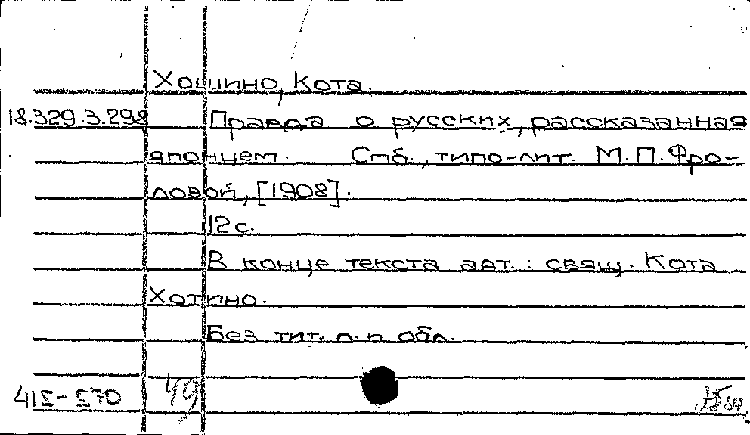 Хошино, Кота.
18.329.3.298 Правда о русских, рассказанная
японцем. Спб., типо-лит. М.П.Фро-
ловой, [1908].
12с.
В конце текста авт.: свящ. Кота
Хотино.
Без тит. л. и обл.
415-570 49